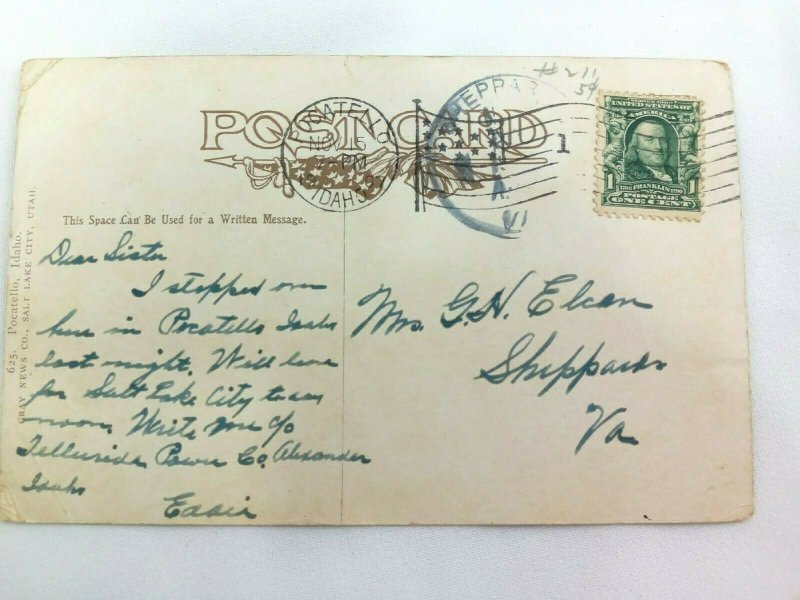 #211
59
POST CARD
POCATELLO
NOV 15
PM
IDAHO
SHEPPAR
VA.
1
UNITED STATES OF
AMERICA
1 FRANKLIN 1790 1
POSTAGE
ONE CENT
This Space Can Be Used for a Written Message.
625. Pocatello, Idaho.
GRAY NEWS CO., SALT LAKE CITY, UTAH.
Dear Sister
I stopped over
here in Pocatello Idaho
last night. Will leave
for Salt Lake City to day
noon. Write me c/o
Telluride Power Co. Alexander
Idaho
Eddie
Mrs. G. H. Elcan
Sheppards
Va